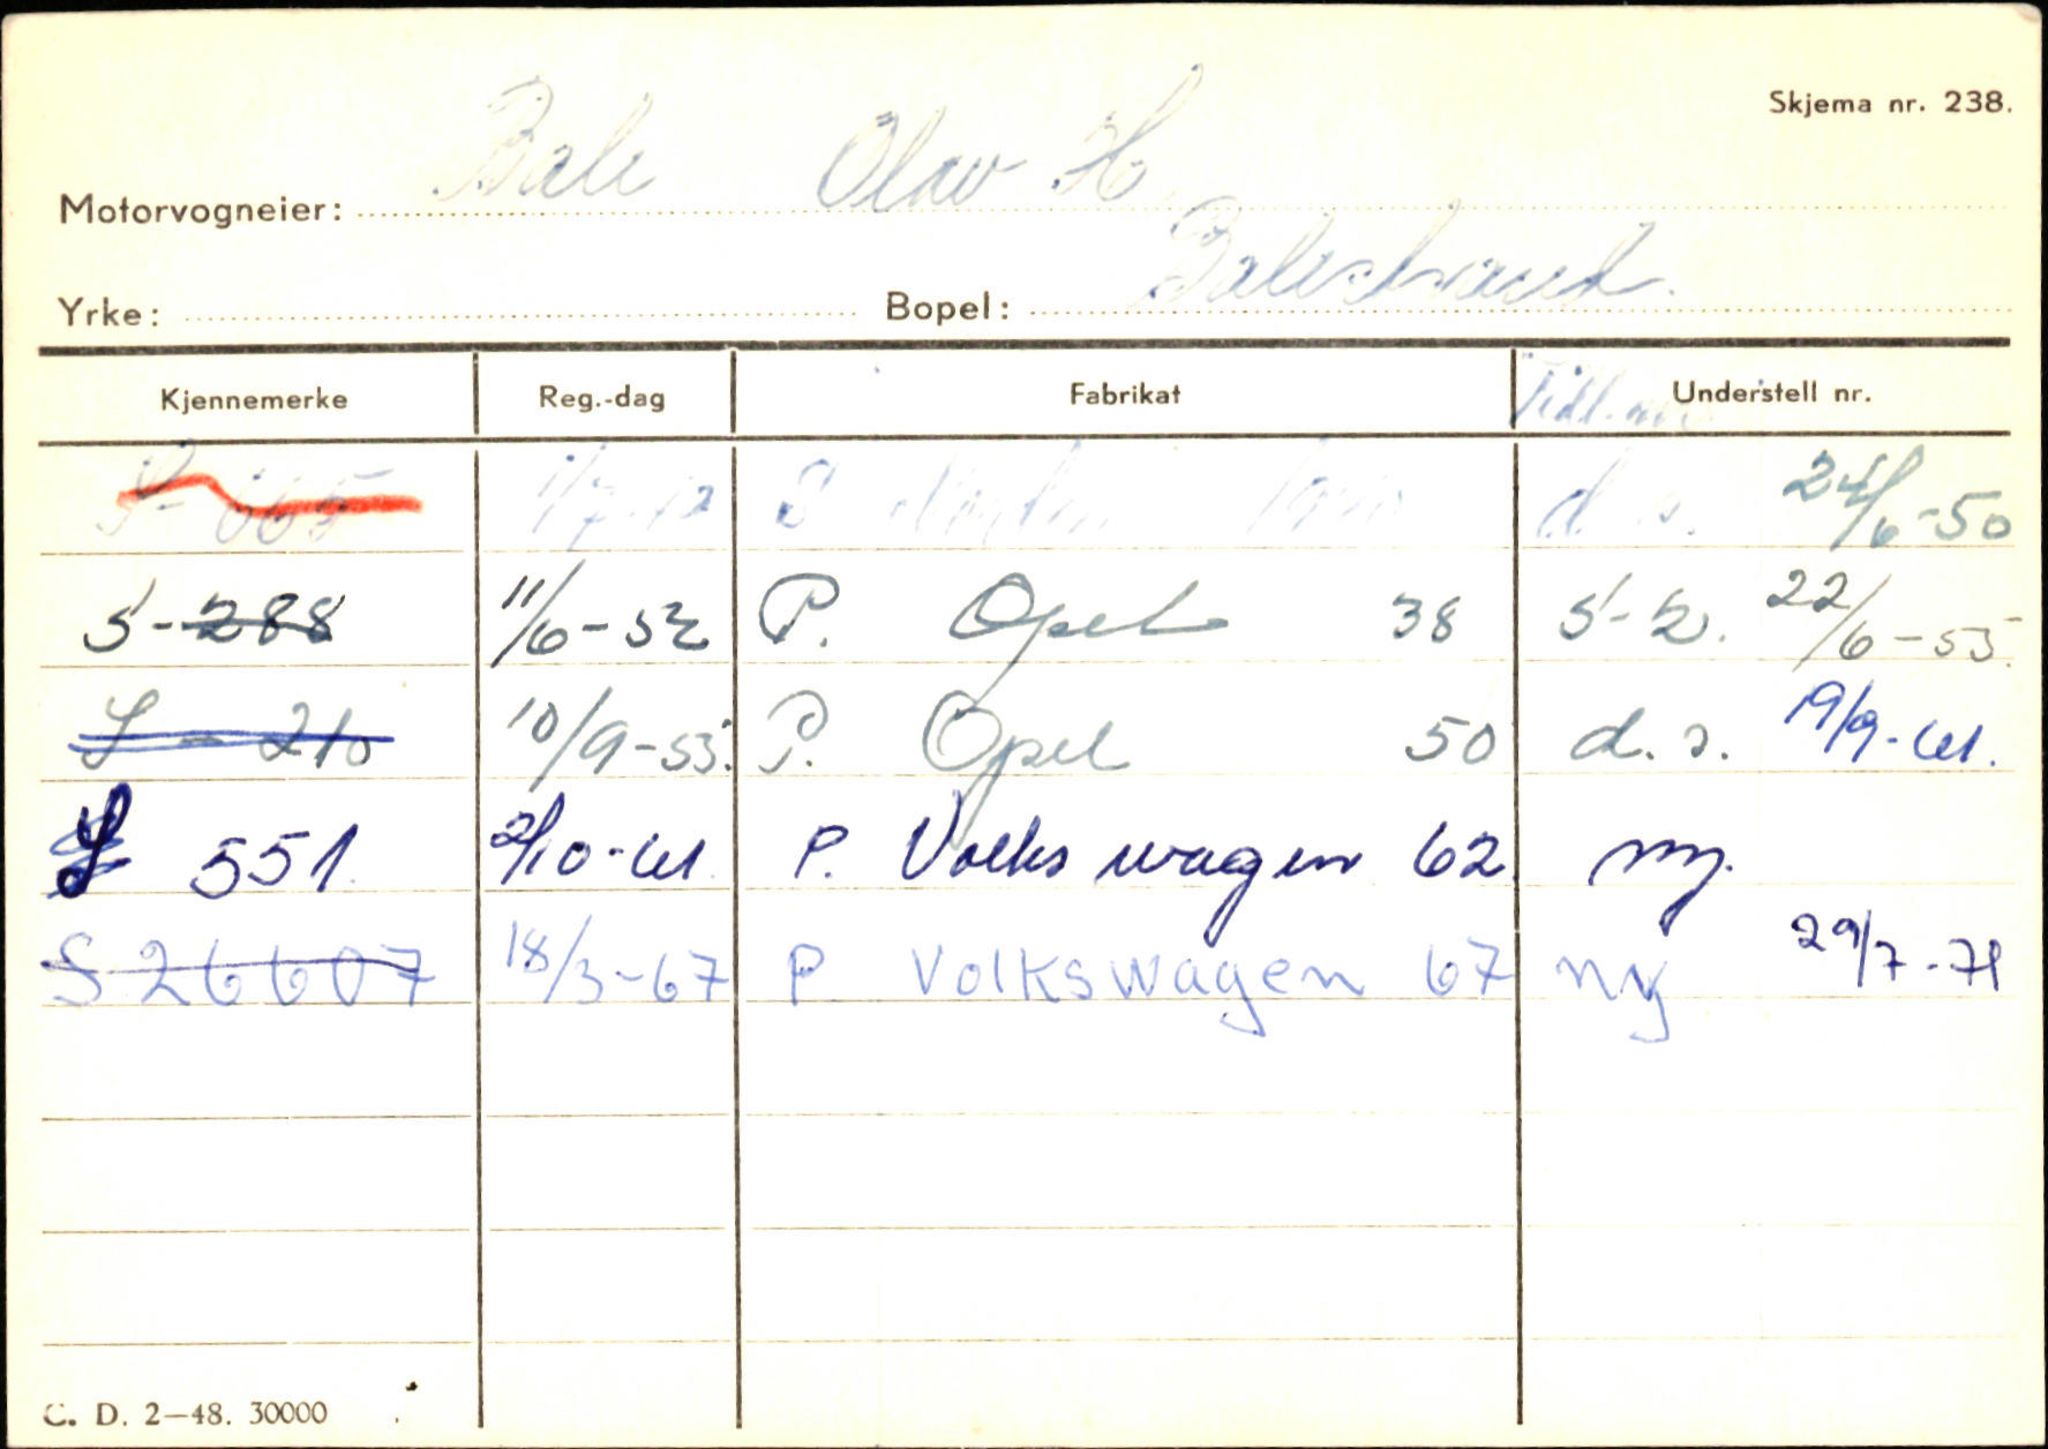 Skjema nr. 238.
Motorvogneier: Bale Olav H
Yrke: Bopel: Balestrand.
Kjennemerke Reg.-dag Fabrikat Understell nr.
S- 665 24/6-50
S-288 11/6-52 P. Opel 38 S-2. 22/6-55.
S-210 10/9-55. P. Opel 50 d.s. 19/9-61.
S 551. 2/10-61. P. Volkswagen 62 ny.
S 26607 18/3-67 P Volkswagen 67 ny 29/7-71
C. D. 2—48. 30000